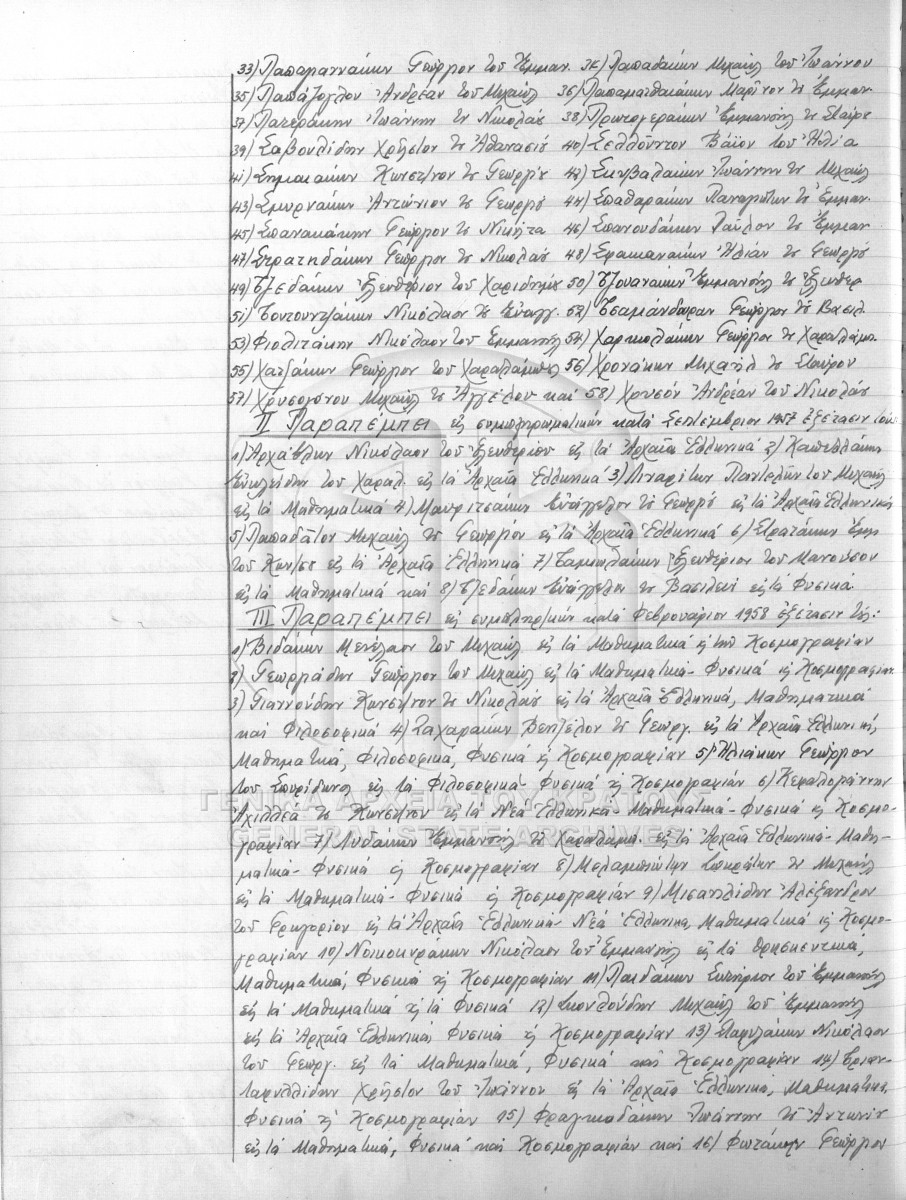 33) Παπαγιαννάκην Γεώργιον του Εμμαν. 34) Παπαδάκην Μιχαήλ του Ιωάννου
35) Παπάζογλου Ανδρέαν του Μιχαήλ 36) Παπαματθαιάκην Μαρίνον του Εμμαν
37) Πατεράκην Ιωάννην του Νικολάου 38) Πρωτογεράκην Εμμανουήλ του Σταύρ
39) Σαβουλίδην Χρήστον του Αθανασίου 40) Σελλούντον Βάϊον του Ηλία
41) Σημαιάκην Κωνστ/νον του Γεωργίου 42) Σκυβαλάκην Ιωάννην του Μιχαήλ
43) Σμυρνάκην Αντώνιον του Γεωργίου 44) Σπαθαράκην Παναγιώτην του Εμμαν.
45) Σπανακάκην Γεώργιον του Νικήτα 46) Σπανουδάκην Παύλον του Εμμαν
47) Στρατηδάκην Γεώργιον του Νικολάου 48) Σφακιανάκην Ηλίαν του Γεωργίου
49) Τζεδάκην Ελευθέριον του Χαριδήμου 50) Τζουανάκην Εμμανουήλ του Ελευθερ
51) Τουτουντζάκην Νικόλαον του Ευαγγ. 52) Τσαμάνδουραν Γεώργιον του Βασιλ.
53) Φιολιτάκην Νικόλαον του Εμμανουήλ 54) Χαρκιολάκην Γεώργιον του Χαραλάμπ.
55) Χατζάκην Γεώργιον του Χαραλάμπους 56) Χρονάκην Μιχαήλ του Σταύρου
57) Χρυσογόνου Μιχαήλ του Αγγέλου και 58) Χρυσόν Ανδρέαν του Νικολάου
II Παραπέμπει εις συμπληρωματικήν κατά Σεπτέμβριον 1957 εξέτασιν τους
1) Αρχάβλην Νικόλαον του Ελευθερίου εις τα Αρχαία Ελληνικά 2) Καπελλάκην
Ευκλείδην του Χαραλ. εις τα Αρχαία Ελληνικά 3) Λιναρίτην Παντελήν του Μιχαήλ
εις τα Μαθηματικά 4) Μαυριτσάκην Ευάγγελον του Γεωργίου εις τα Αρχαία Ελληνικά
5) Παπαδάτον Μιχαήλ του Γεωργίου εις τα Αρχαία Ελληνικά 6) Στρατάκην
του Κων/νου εις τα Αρχαία Ελληνικά 7) Ταμιωλάκην Ελευθέριον του Μανούσου
εις τα Μαθηματικά και 8) Τζεδάκην Ευάγγελον του Βασιλείου εις τα Φυσικά.
III Παραπέμπει εις συμπληρ/κήν κατά Φεβρουάριον 1958 εξέτασιν τους:
1) Βιδάκην Μενέλαον του Μιχαήλ εις τα Μαθηματικά και την Κοσμογραφίαν
2) Γεωργιάδην Γεώργιον του Μιχαήλ εις τα Μαθηματικά- Φυσικά και Κοσμογραφίαν
3) Γιαννούδην Κωνστ/νον του Νικολάου εις τα Αρχαία Ελληνικά, Μαθηματικά
και Φιλοσοφικά 4) Ζαχαράκην Βενιζέλον του Γεωργ. εις τα Αρχαία Ελληνικά,
Μαθηματικά, Φιλοσοφικά, Φυσικά και Κοσμογραφίαν 5) Ηλιάκην Γεώργιον
του Σπυρίδωνος εις τα Φιλοσοφικά Φυσικά και Κοσμογραφίαν 6) Κεφαλογιάννην
Αχιλλέα του Κωνστ/νου εις τα Νέα Ελληνικά- Μαθηματικά- Φυσικά και Κοσμο-
γραφίαν 7) Λυδάκην Εμμανουήλ του Χαραλάμπ. εις τα Αρχαία Ελληνικά- Μαθη-
ματικά- Φυσικά και Κοσμογραφίαν 8) Μελαμπιώτην Σωκράτην του Μιχαήλ
εις τα Μαθηματικά- Φυσικά και Κοσμογραφίαν 9) Μισαηλίδην Αλέξανδρον
του Γρηγορίου εις τα Αρχαία Ελληνικά- Νέα Ελληνικά, Μαθηματικά και Κοσμο-
γραφίαν 10) Νοικοκυράκην Νικόλαον του Εμμανουήλ εις τα Θρησκευτικά,
Μαθηματικά, Φυσικά και Κοσμογραφίαν 11) Παιδάκην Σωτήριον του Εμμανουήλ
εις τα Μαθηματικά και τα Φυσικά 12) Σκουλούδην Μιχαήλ του Εμμανουήλ
εις τα Αρχαία Ελληνικά, Φυσικά και Κοσμογραφίαν 13) Σταφυλάκην Νικόλαον
του Γεωργ. εις τα Μαθηματικά, Φυσικά και Κοσμογραφίαν 14) Τριαν-
ταφυλλίδην Χρήστον του Ιωάννου εις τα Αρχαία Ελληνικά, Μαθηματικά,
Φυσικά και Κοσμογραφίαν 15) Φραγκιαδάκην Ιωάννην του Αντωνίου
εις τα Μαθηματικά, Φυσικά και Κοσμογραφίαν και 16) Φωτάκην Γεώργιον
ΓΕΝΙΚΑ ΑΡΧΕΙΑ ΤΟΥ ΚΡΑΤΟΥΣ
GENERAL STATE ARCHIVES